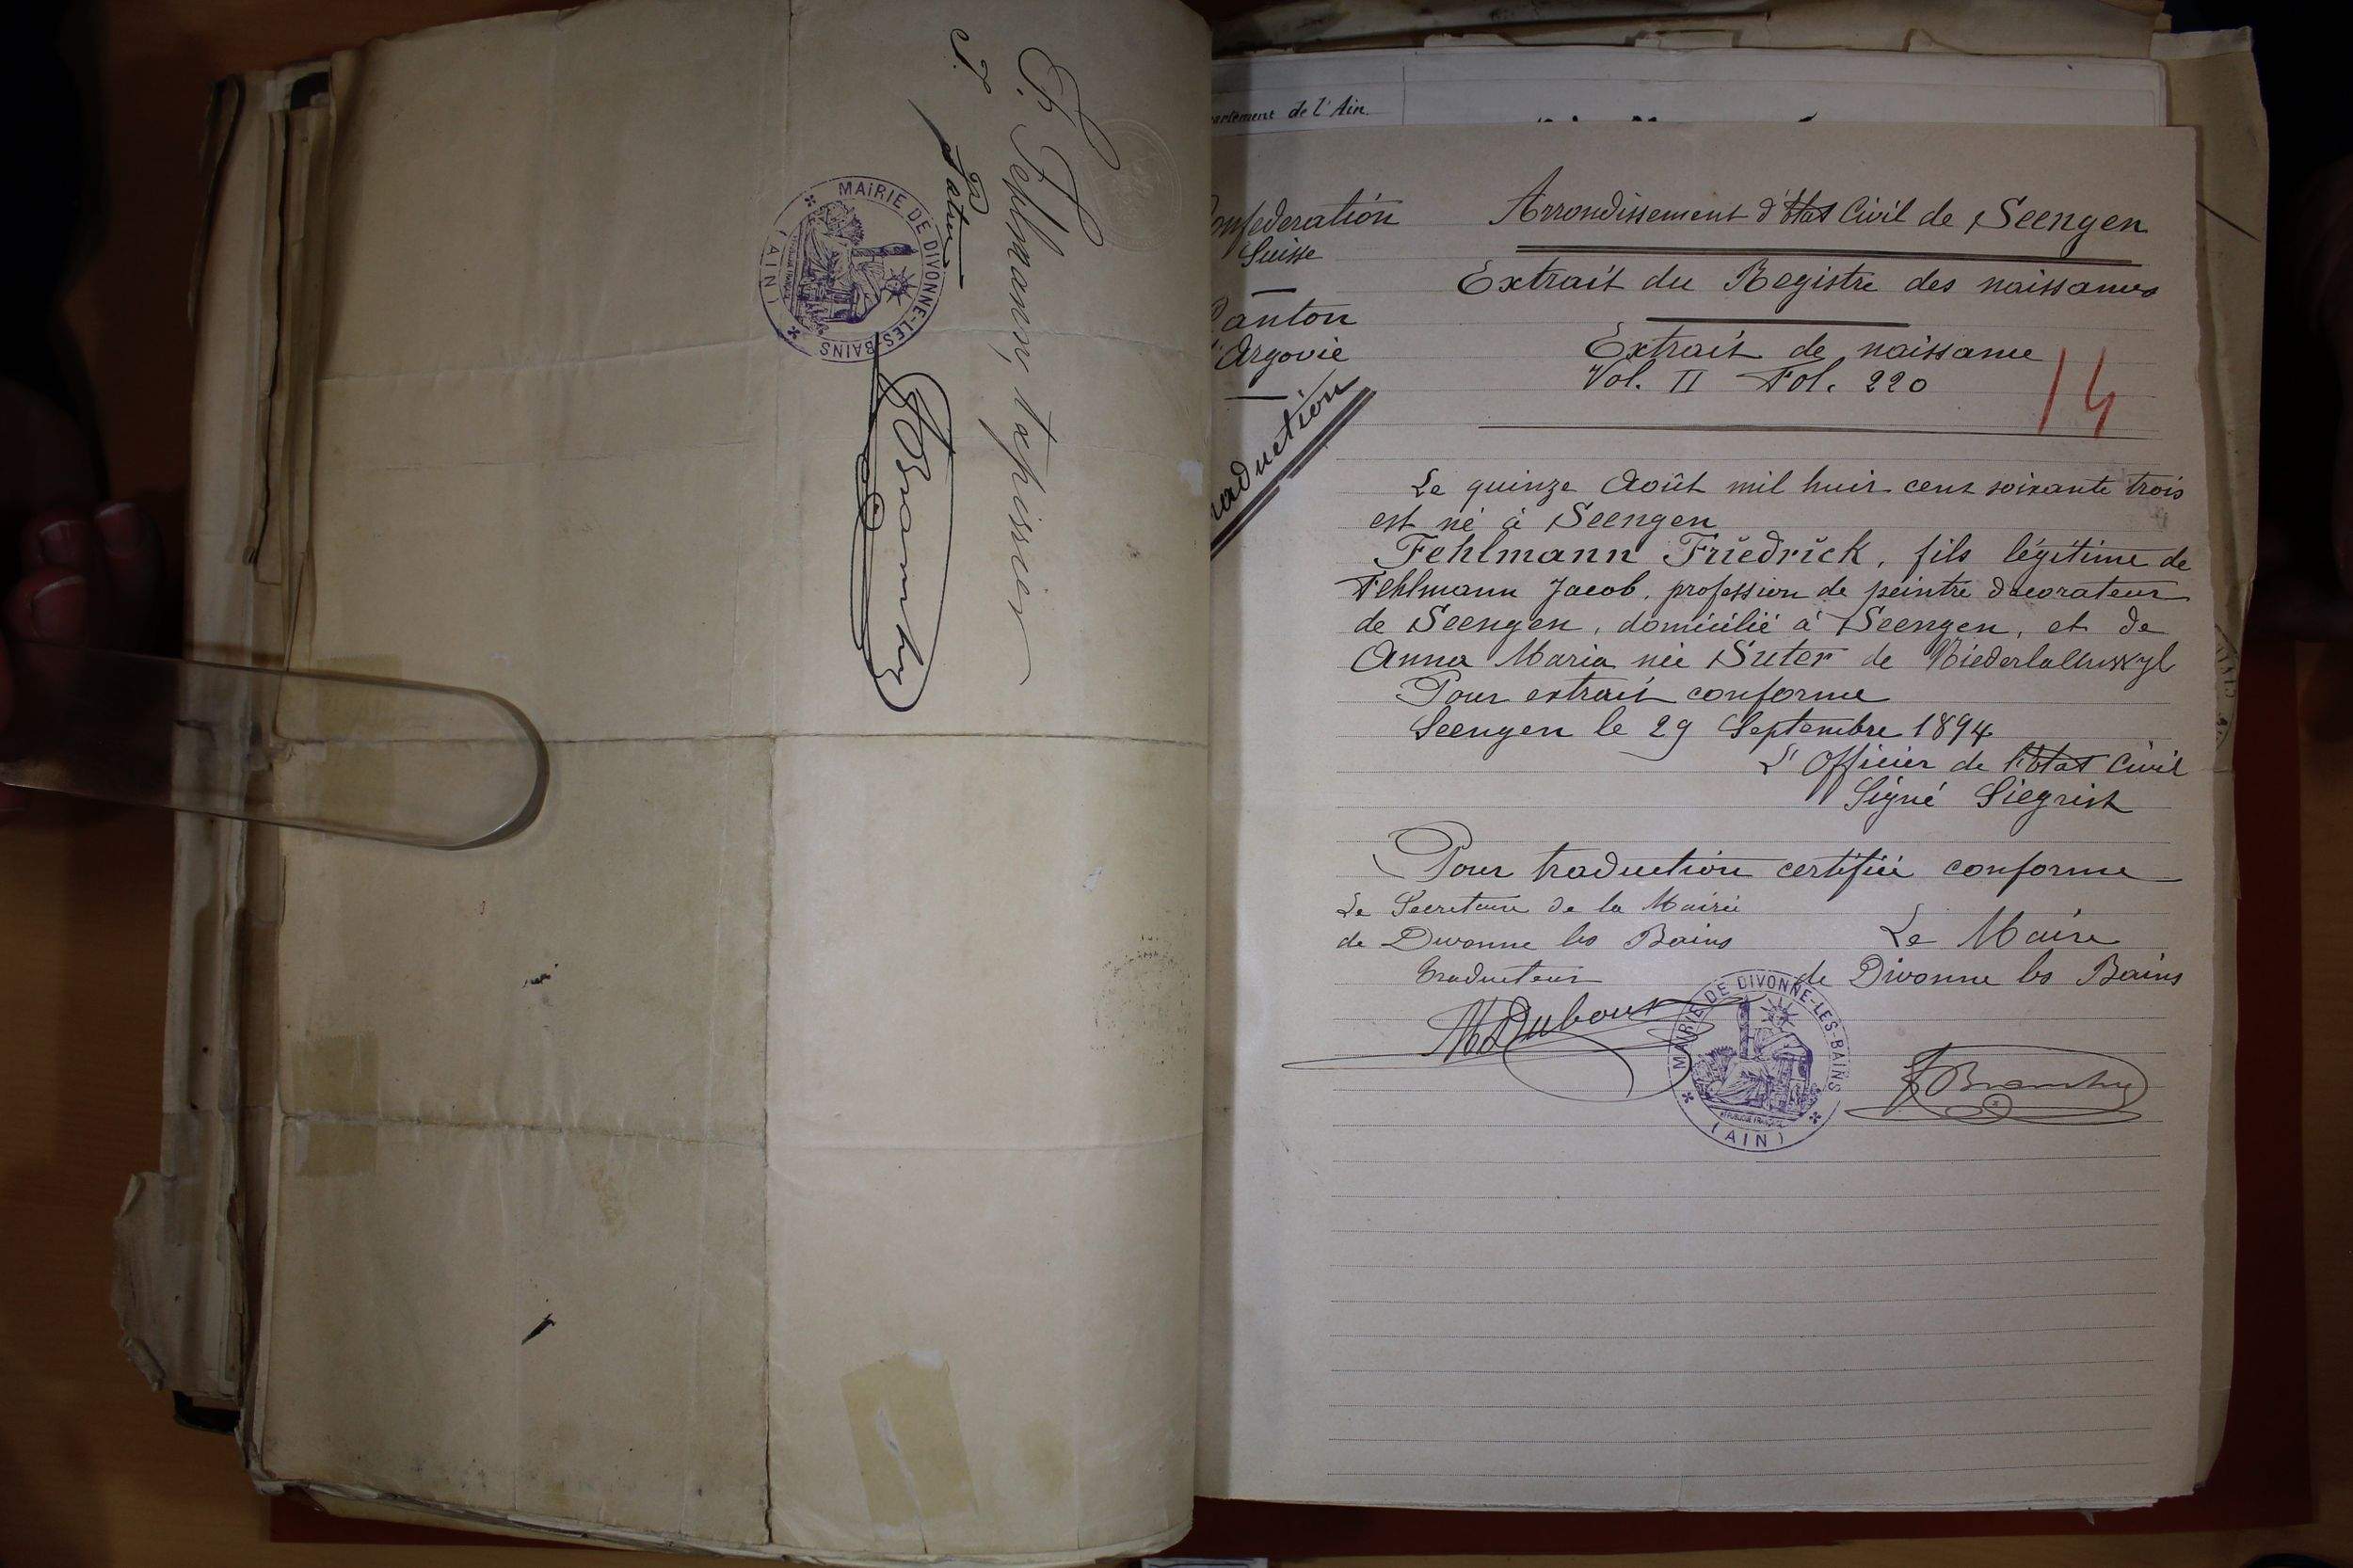 Fr. Fehlmann, tapissier
MAIRIE DE DIVONNE-LES-BAINS
(AIN)
artement de l'Ain.
onfederation
Suisse
Canton
d'Argovie
raduction
Arrondissement d'Etat Civil de Seengen
Extrait du Registre des naissances
Extrait de naissance
Vol. II Fol. 220
14
Le quinze Août mil huit cent soixante trois
est né à Seengen
Fehlmann Friedrick, fils légitime de
Fehlmann Jacob, profession de peintre décorateur
de Seengen, domicilié à Seengen, et de
Anna Maria née Suter de
Pour extrait conforme
Seengen le 29 Septembre 1894
L'Officier de l'Etat Civil
Signé Siegrist
Pour traduction certifiée conforme
Le Secretaire de la Mairie
de Divonne les Bains
traducteur
Le Maire
de Divonne les Bains
MDubout
MAIRIE DE DIVONNE-LES-BAINS
RÉPUBLIQUE FRANÇAISE
(AIN)